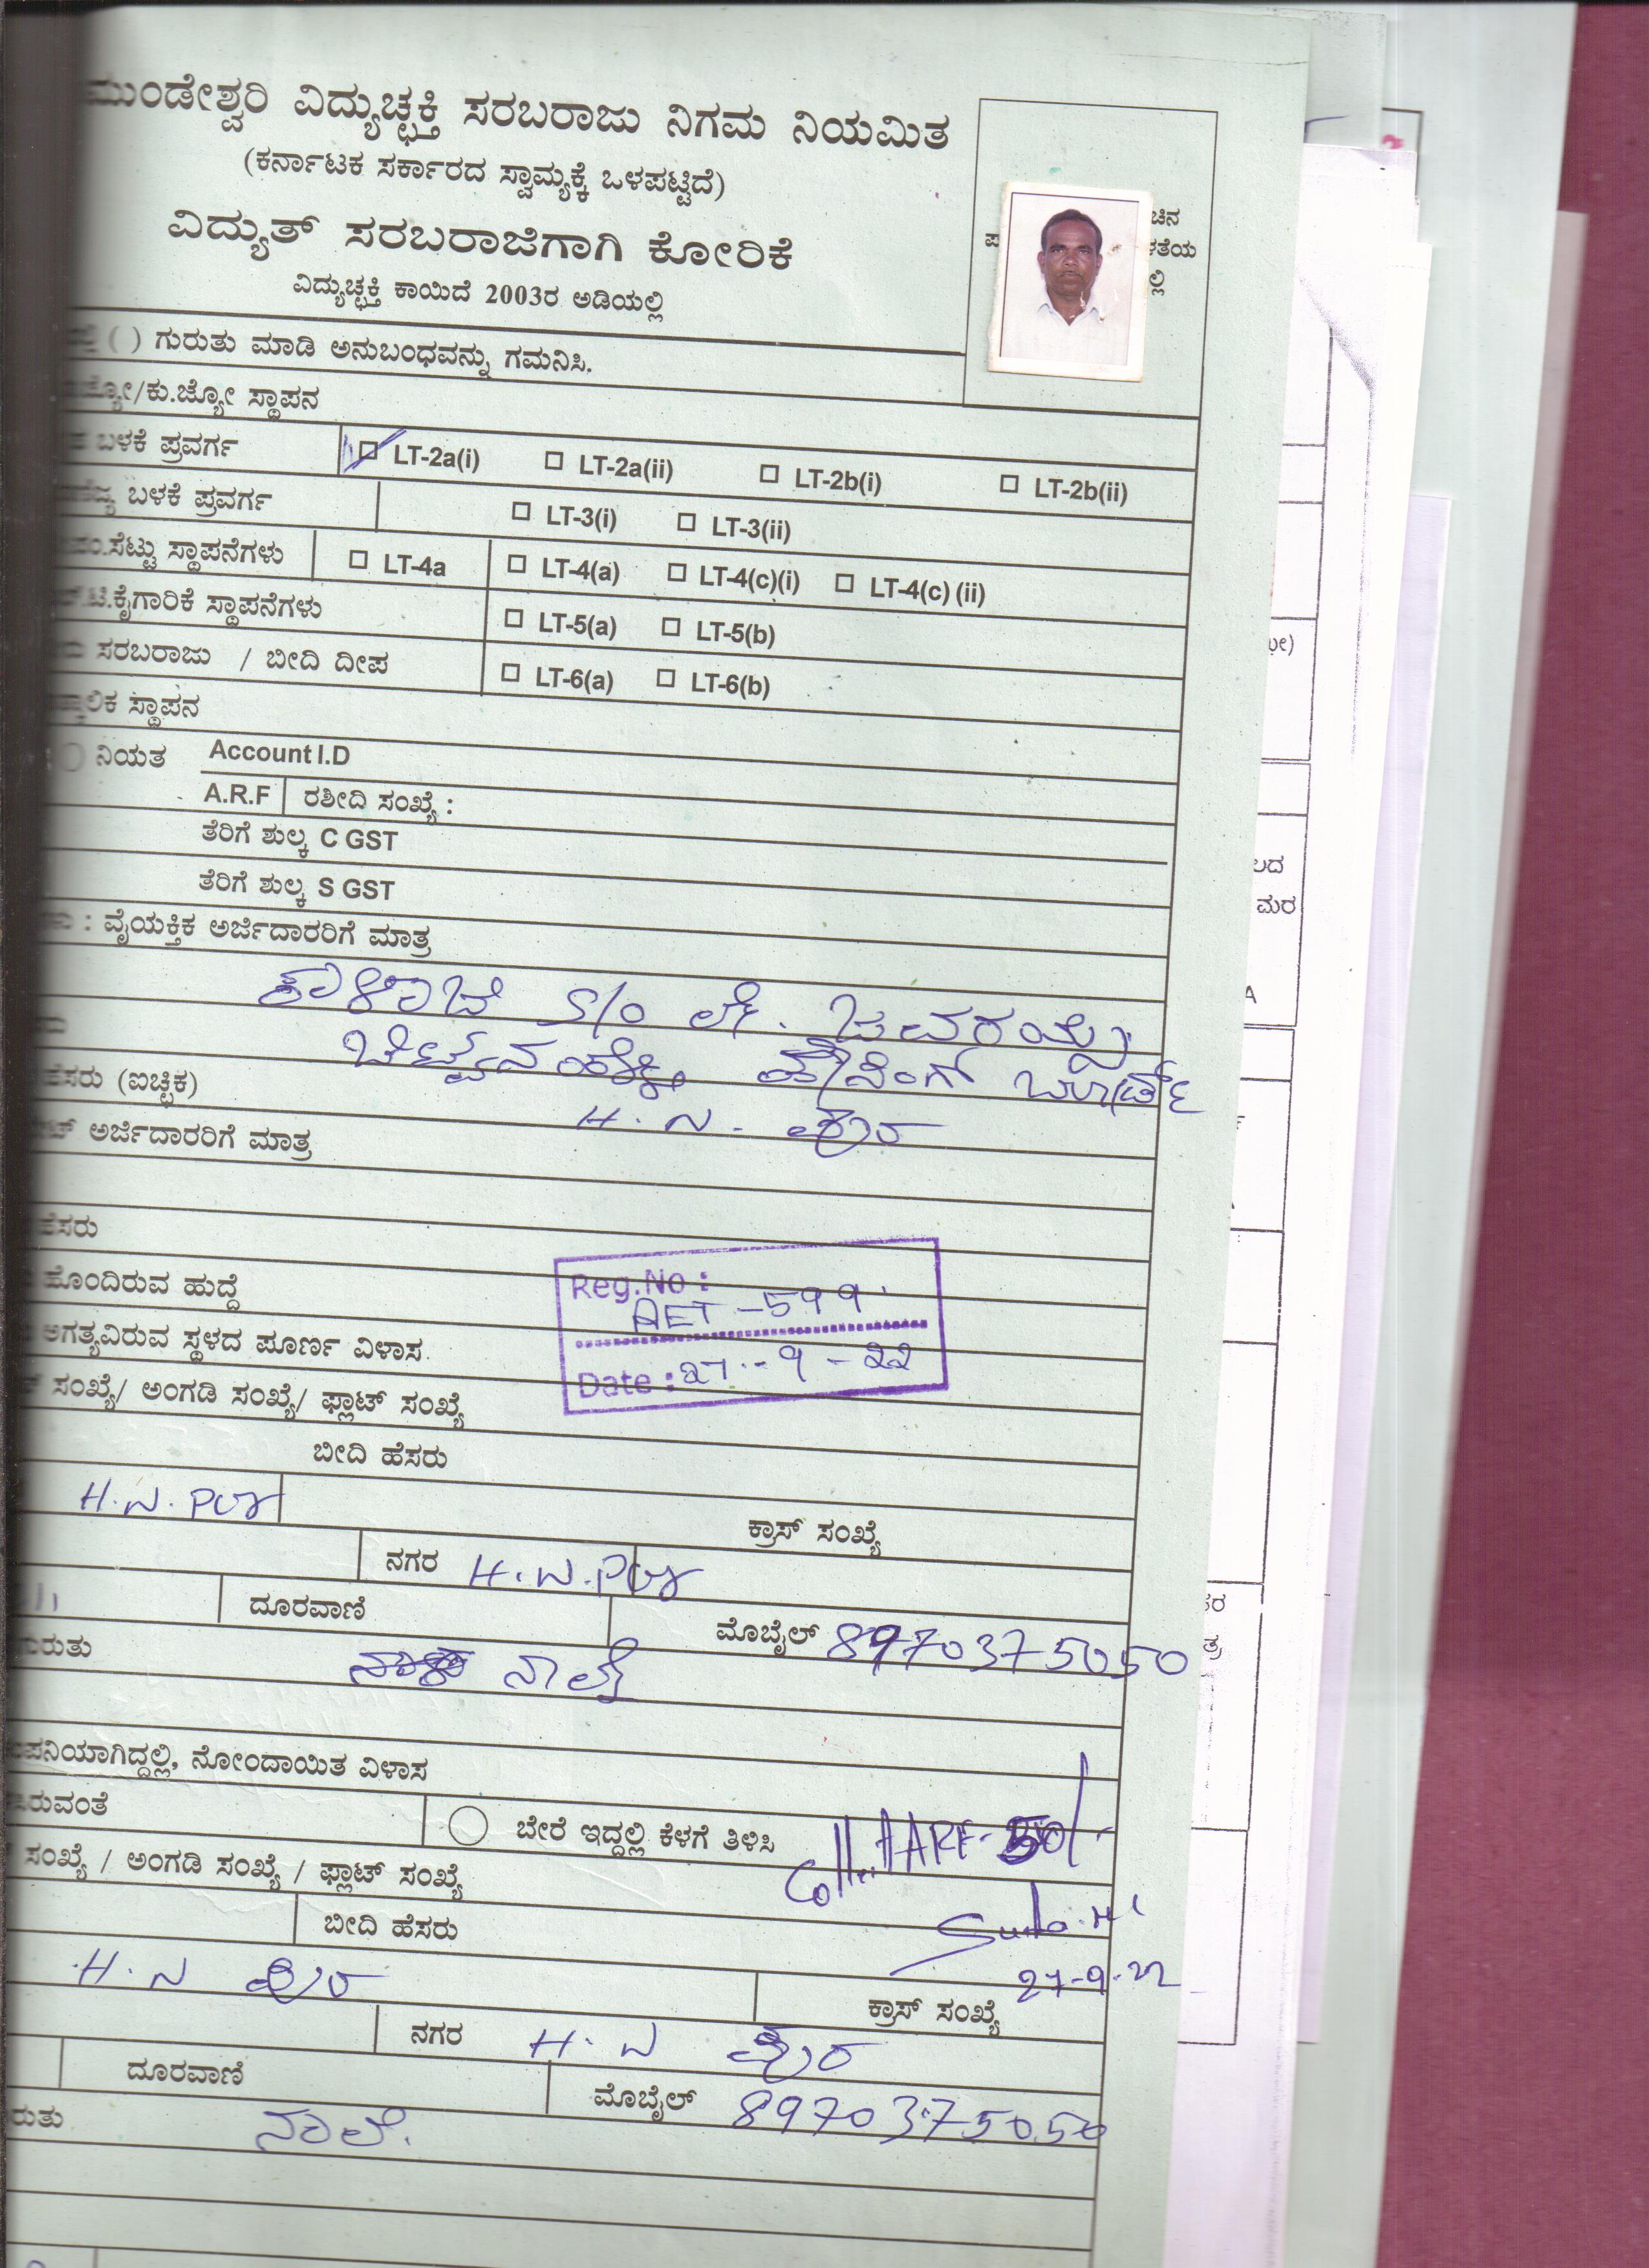 ಮುಂಡೇಶ್ವರಿ ವಿದ್ಯುಚ್ಛಕ್ತಿ ಸರಬರಾಜು ನಿಗಮ ನಿಯಮಿತ
(ಕರ್ನಾಟಕ ಸರ್ಕಾರದ ಸ್ವಾಮ್ಯಕ್ಕೆ ಒಳಪಟ್ಟಿದೆ)
ವಿದ್ಯುತ್ ಸರಬರಾಜಿಗಾಗಿ ಕೋರಿಕೆ
ವಿದ್ಯುಚ್ಛಕ್ತಿ ಕಾಯಿದೆ 2003ರ ಅಡಿಯಲ್ಲಿ
( ) ಗುರುತು ಮಾಡಿ ಅನುಬಂಧವನ್ನು ಗಮನಿಸಿ.
/ಕು.ಜ್ಯೋ ಸ್ಥಾಪನ
ಬಳಕೆ ಪ್ರವರ್ಗ LT-2a(i) LT-2a(ii) LT-2b(i) LT-2b(ii)
ಬಳಕೆ ಪ್ರವರ್ಗ LT-3(i) LT-3(ii)
ಸೆಟ್ಟು ಸ್ಥಾಪನೆಗಳು LT-4a LT-4(a) LT-4(c)(i) LT-4(c) (ii)
ಕೈಗಾರಿಕೆ ಸ್ಥಾಪನೆಗಳು LT-5(a) LT-5(b)
ಸರಬರಾಜು / ಬೀದಿ ದೀಪ LT-6(a) LT-6(b)
ಸ್ಥಾಪನ
ನಿಯತ Account I.D
A.R.F ರಶೀದಿ ಸಂಖ್ಯೆ :
ತೆರಿಗೆ ಶುಲ್ಕ C GST
ತೆರಿಗೆ ಶುಲ್ಕ S GST
: ವೈಯಕ್ತಿಕ ಅರ್ಜಿದಾರರಿಗೆ ಮಾತ್ರ
S/o ಲೇ. ಜವರಯ್ಯ
ಹೌಸಿಂಗ್ ಬೋರ್ಡ್
ಹೆಸರು (ಐಚ್ಛಿಕ)
H. N. ಪುರ
ಅರ್ಜಿದಾರರಿಗೆ ಮಾತ್ರ
ಹೆಸರು
ಹೊಂದಿರುವ ಹುದ್ದೆ
Reg.No :
AET-599
ಅಗತ್ಯವಿರುವ ಸ್ಥಳದ ಪೂರ್ಣ ವಿಳಾಸ.
Date : 27-9-22
ಸಂಖ್ಯೆ/ ಅಂಗಡಿ ಸಂಖ್ಯೆ/ ಫ್ಲಾಟ್ ಸಂಖ್ಯೆ
ಬೀದಿ ಹೆಸರು
H.N.Pur
ಕ್ರಾಸ್ ಸಂಖ್ಯೆ
ನಗರ H.N.Pur
ದೂರವಾಣಿ ಮೊಬೈಲ್ 8970375050
ಗುರುತು
ನಾಲೆ
ನೋಂದಾಯಿತ ವಿಳಾಸ
ಬೇರೆ ಇದ್ದಲ್ಲಿ ಕೆಳಗೆ ತಿಳಿಸಿ
ಸಂಖ್ಯೆ / ಅಂಗಡಿ ಸಂಖ್ಯೆ / ಫ್ಲಾಟ್ ಸಂಖ್ಯೆ
ಬೀದಿ ಹೆಸರು
27-9-22
H. N ಪುರ
ಕ್ರಾಸ್ ಸಂಖ್ಯೆ
ನಗರ H. N ಪುರ
ದೂರವಾಣಿ ಮೊಬೈಲ್ 8970375050
ನಾಲೆ.